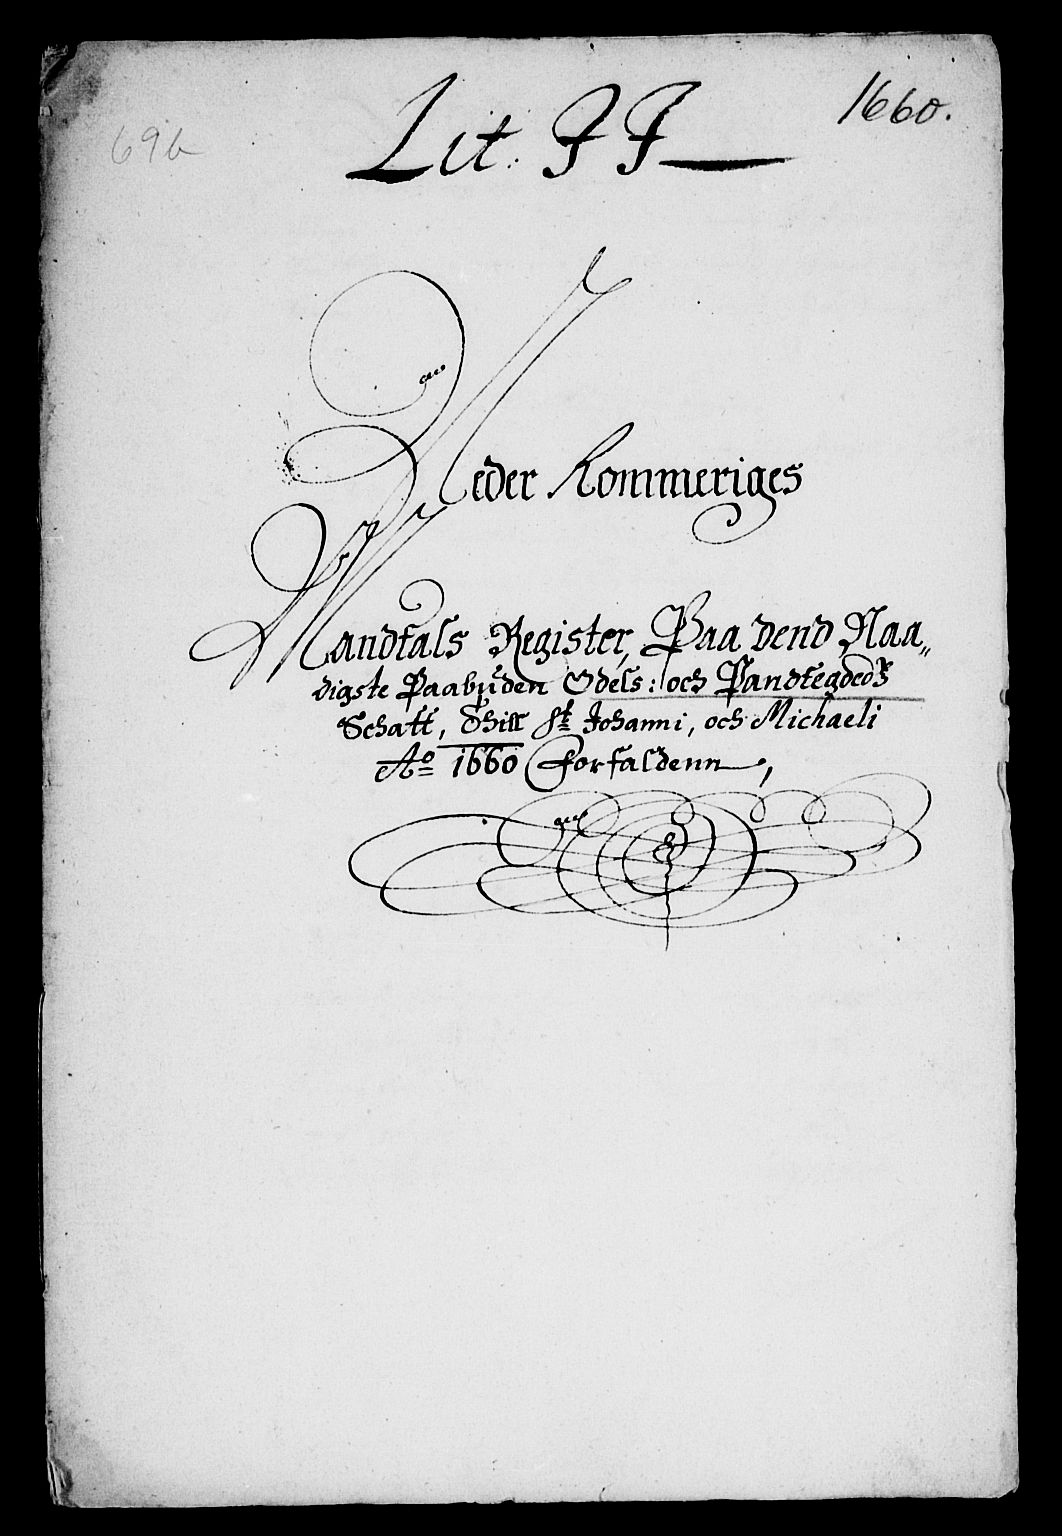 1660.
69b
Lit: JJ
Neder Rommeriges
Mandtals Register, Paa dend Naa„
digste Paabuden Odels: och Pandtegodtz
Schatt, Thill St Johanni, och Michaeli
Ao 1660 forfaldenn,